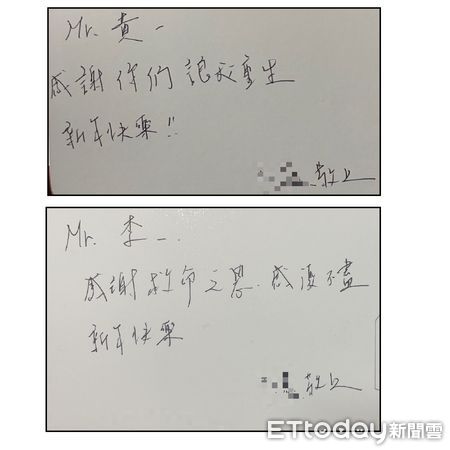 Mr. 黃 一
感謝你們 讓我重生
新年快樂!!
敬上
Mr. 李 一..
感謝救命之恩. 感激不盡
新年快樂
敬上
ETtoday新聞雲